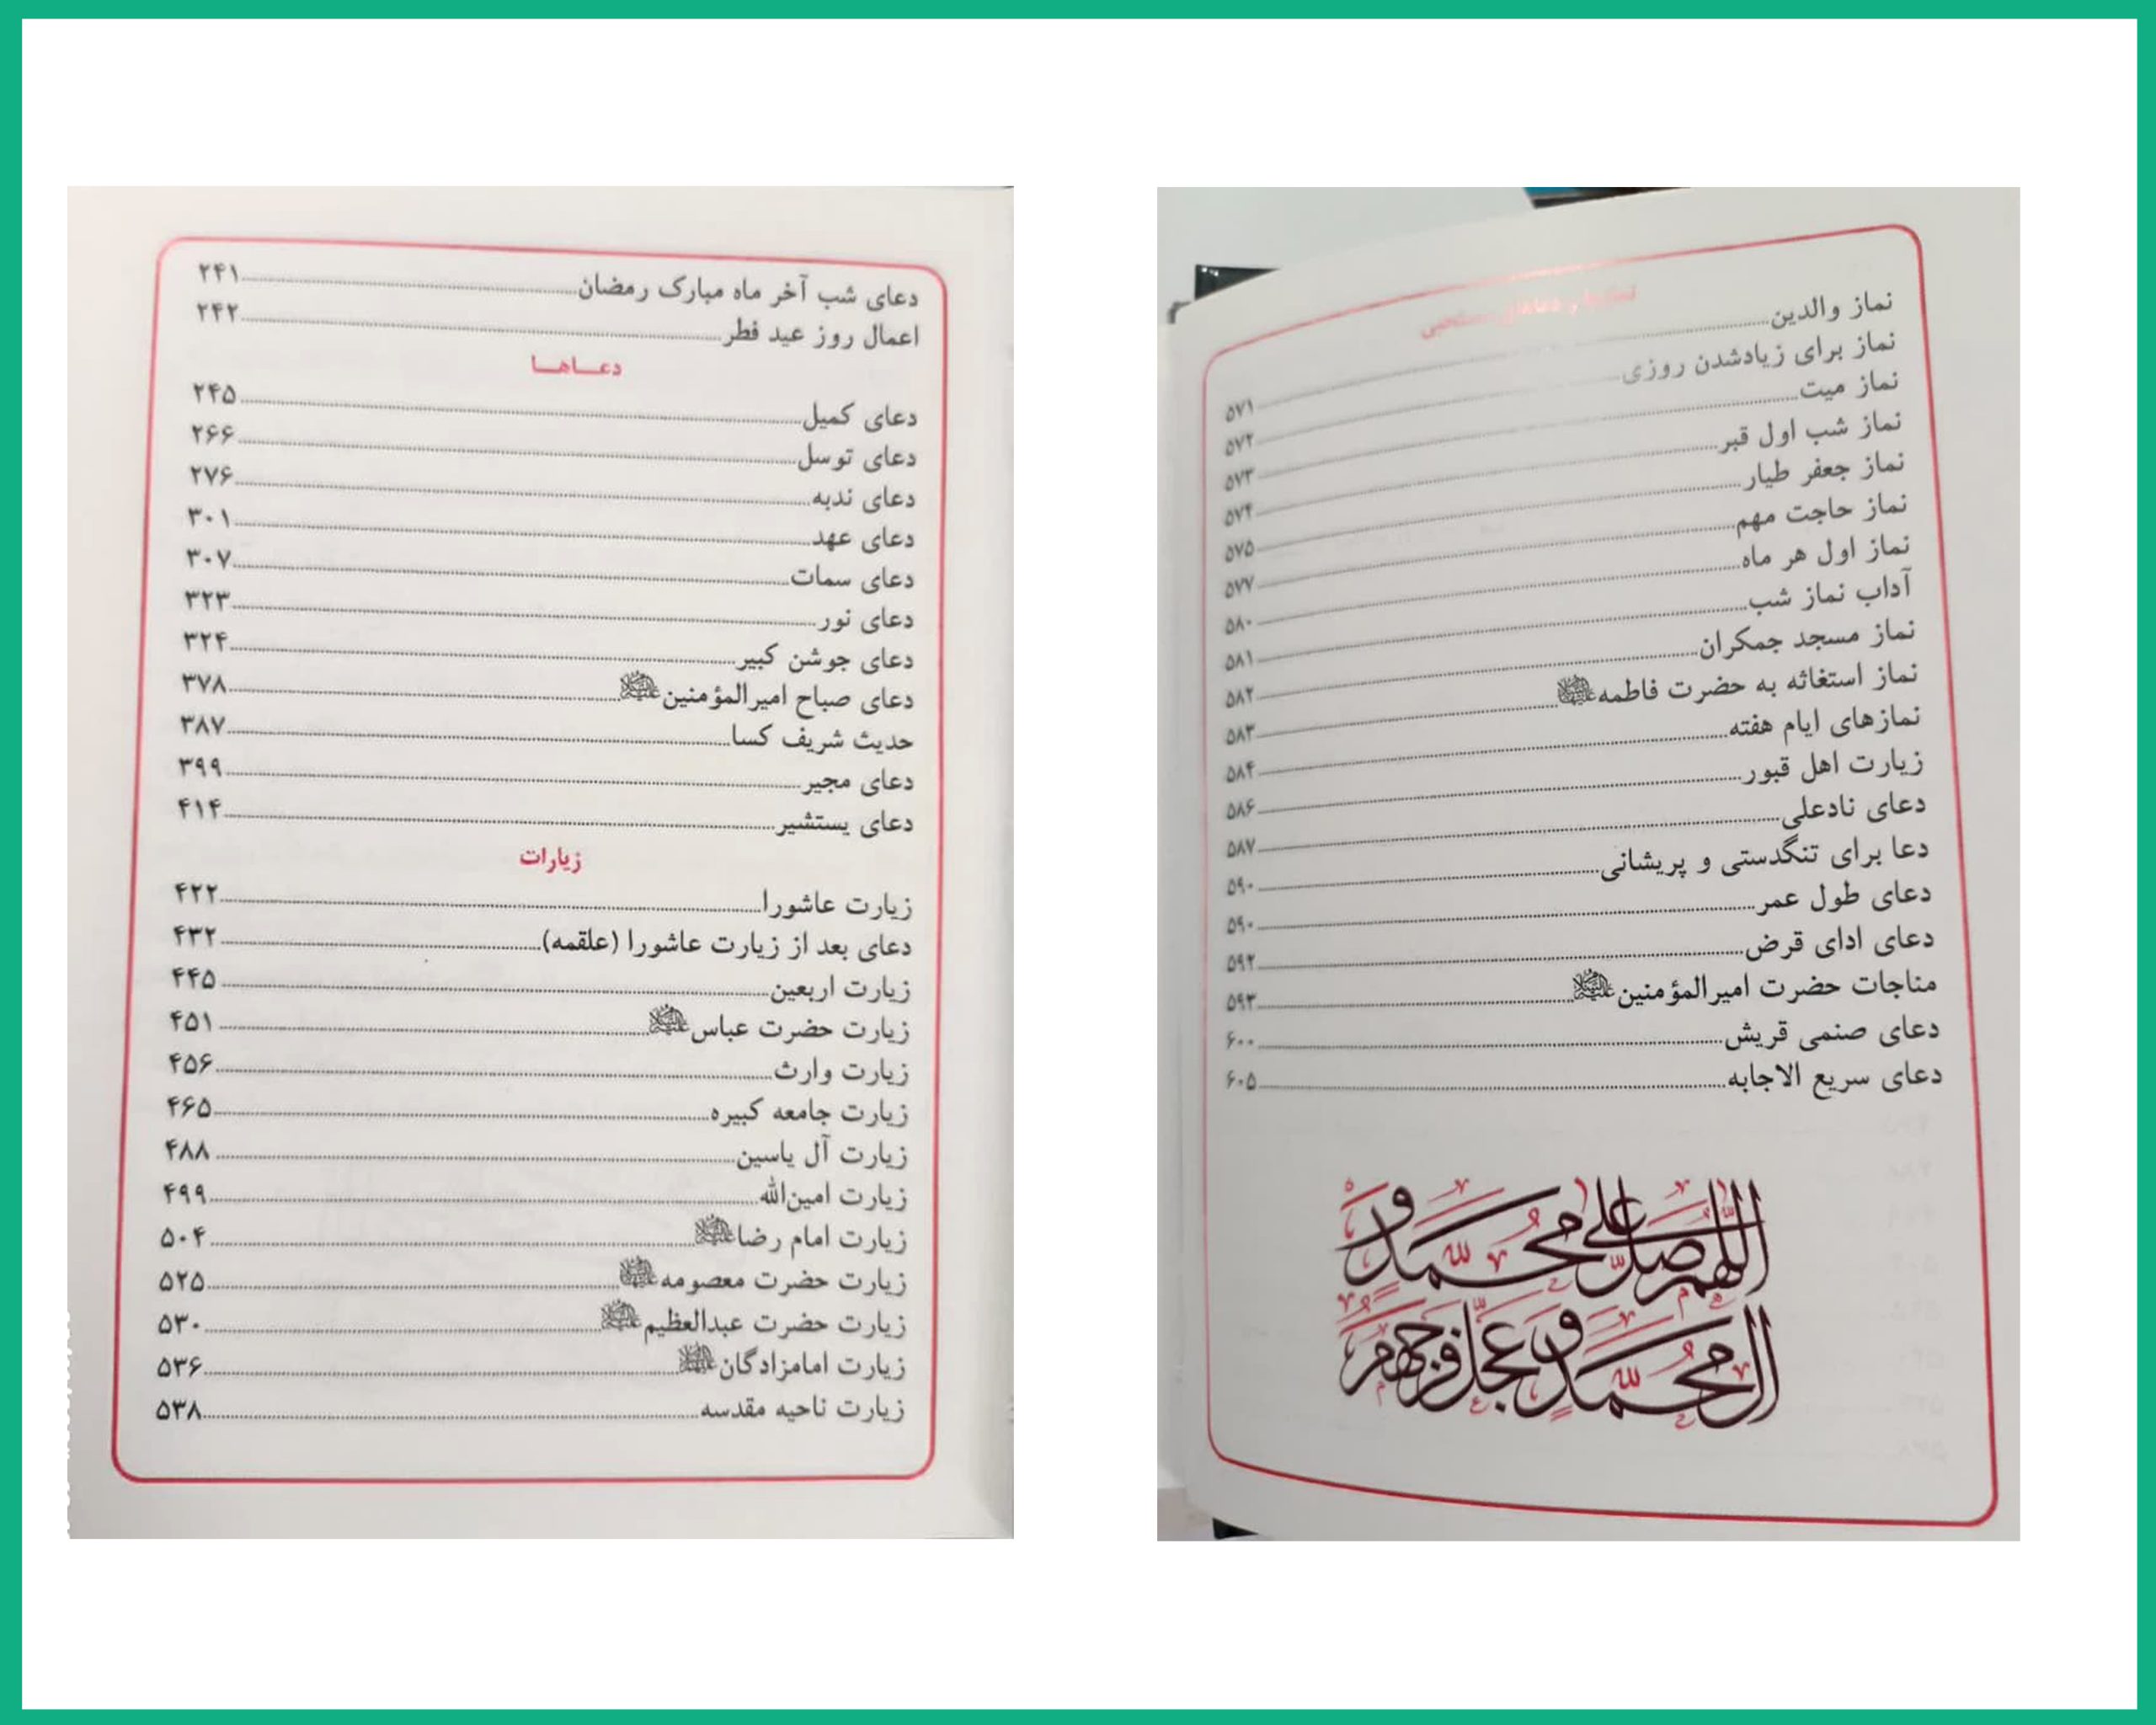 دعای شب آخر ماه مبارک رمضان ۲۴۱
اعمال روز عید فطر ۲۴۲
دعاها
دعای کمیل ۲۴۵
دعای توسل ۲۶۶
دعای ندبه ۲۷۶
دعای عهد ۳۰۱
دعای سمات ۳۰۷
دعای نور ۳۲۳
دعای جوشن کبیر ۳۲۴
دعای صباح امیرالمؤمنین ۳۷۸
حدیث شریف کسا ۳۸۷
دعای مجیر ۳۹۹
دعای یستشیر ۴۱۴
زیارات
زیارت عاشورا ۴۲۲
دعای بعد از زیارت عاشورا (علقمه) ۴۳۲
زیارت اربعین ۴۴۵
زیارت حضرت عباس ۴۵۱
زیارت وارث ۴۵۶
زیارت جامعه کبیره ۴۶۵
زیارت آل یاسین ۴۸۸
زیارت امین‌الله ۴۹۹
زیارت امام رضا ۵۰۴
زیارت حضرت معصومه ۵۲۵
زیارت حضرت عبدالعظیم ۵۳۰
زیارت امامزادگان ۵۳۶
زیارت ناحیه مقدسه ۵۳۸
نماز والدین ۵۷۱
نماز برای زیادشدن روزی ۵۷۲
نماز میت ۵۷۳
نماز شب اول قبر ۵۷۴
نماز جعفر طیار ۵۷۵
نماز حاجت مهم ۵۷۷
نماز اول هر ماه ۵۸۰
آداب نماز شب ۵۸۱
نماز مسجد جمکران ۵۸۲
نماز استغاثه به حضرت فاطمه ۵۸۳
نمازهای ایام هفته ۵۸۴
زیارت اهل قبور ۵۸۶
دعای نادعلی ۵۸۷
دعا برای تنگدستی و پریشانی ۵۹۰
دعای طول عمر ۵۹۰
دعای ادای قرض ۵۹۲
مناجات حضرت امیرالمؤمنین ۵۹۳
دعای صنمی قریش ۶۰۰
دعای سریع الاجابه ۶۰۵
اللهم صل علی محمد و
آل محمد و عجل فرجهم